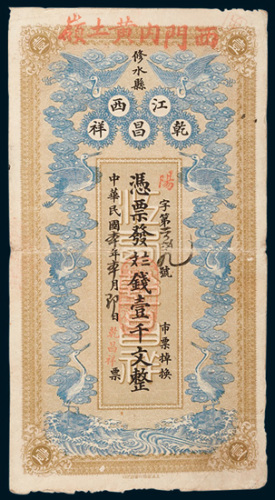 西門內黃土嶺
修水縣
江西
乾昌祥
陽字第九號
市票掉換
憑票發錢壹千文整
中華民國年月日票